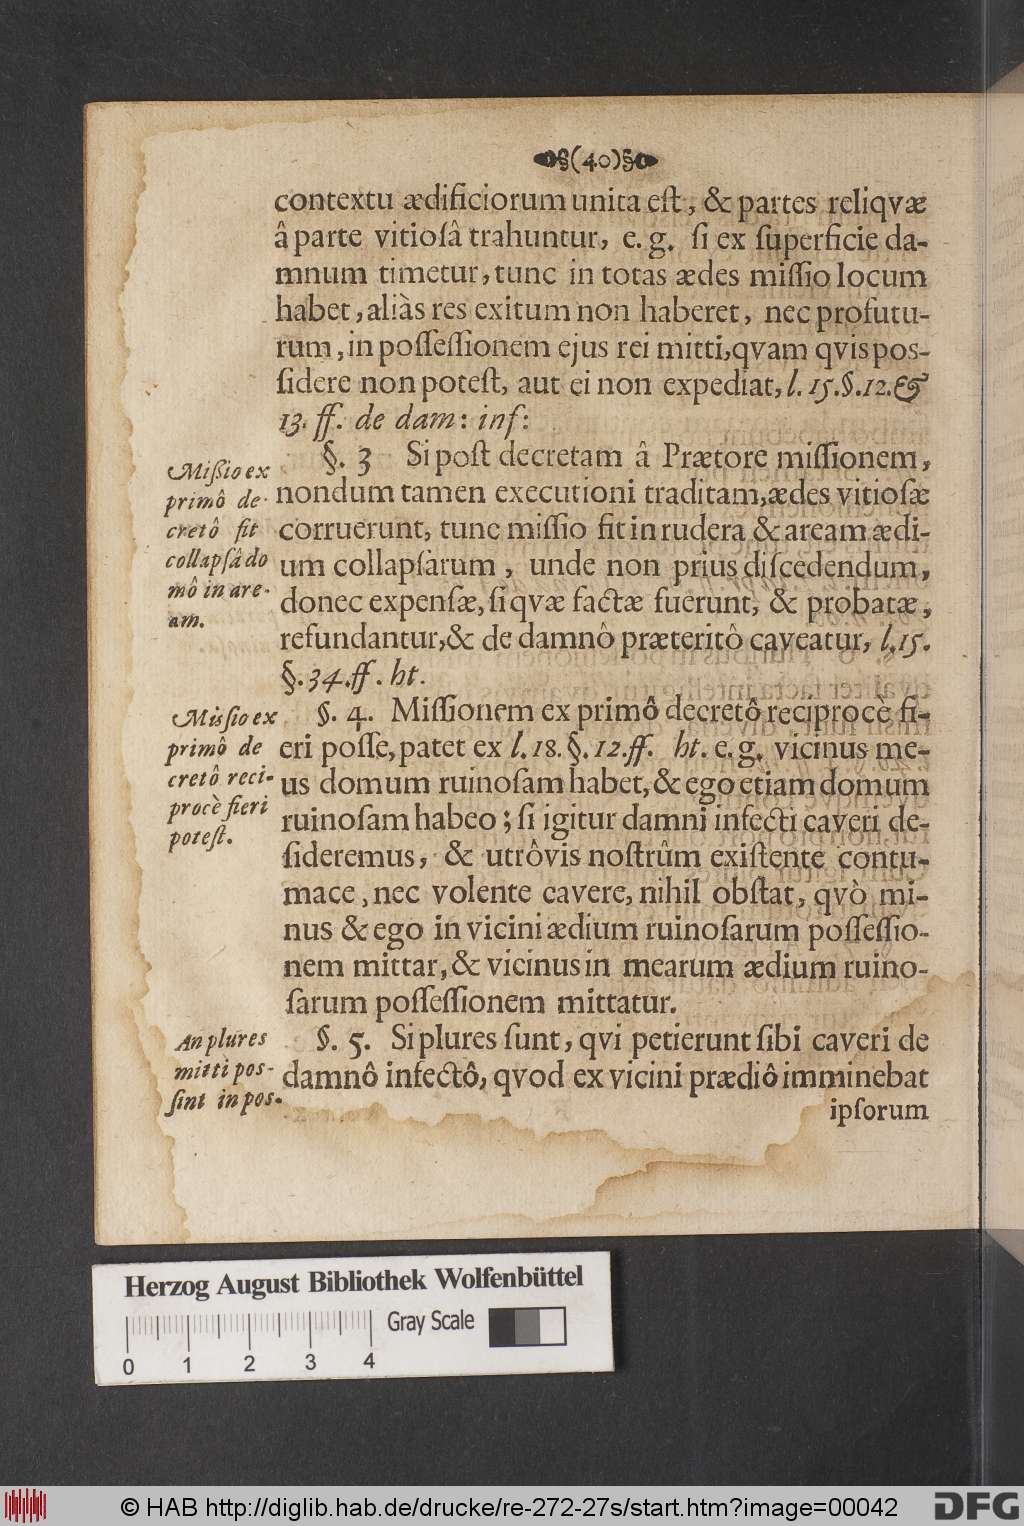 §(40)§
contextu ædificiorum unita eſt, & partes reliqvæ
â parte vitioſâ trahuntur, e. g. ſi ex ſuperficie da-
mnum timetur, tunc in totas ædes miſſio locum
habet, aliàs res exitum non haberet, nec profutu-
rum, in poſſeſſionem ejus rei mitti, qvam qvis poſ-
ſidere non poteſt, aut ei non expediat, l. 15. §. 12. &
13. ff. de dam: inf:
Miſsio ex
primô de-
cretô fit
collapſâ do
mô in are-
am.
§. 3 Si poſt decretam â Prætore miſſionem,
nondum tamen executioni traditam, ædes vitioſæ
corruerunt, tunc miſſio fit in rudera & aream ædi-
um collapſarum, unde non prius diſcedendum,
donec expenſæ, ſi qvæ factæ fuerunt, & probatæ,
refundantur, & de damnô præteritô caveatur, l. 15.
§. 34. ff. ht.
Miſsio ex
primô de
cretô reci-
procè fieri
poteſt.
§. 4. Miſſionem ex primô decretô reciprocè fi-
eri poſſe, patet ex l. 18. §. 12. ff. ht. e. g. vicinus me-
us domum ruinoſam habet, & ego etiam domum
ruinoſam habeo; ſi igitur damni infecti caveri de-
ſideremus, & utrôvis noſtrûm exiſtente contu-
mace, nec volente cavere, nihil obſtat, qvò mi-
nus & ego in vicini ædium ruinoſarum poſſeſſio-
nem mittar, & vicinus in mearum ædium ruino-
ſarum poſſeſſionem mittatur.
An plures
mitti poſ-
ſint in poſ-
§. 5. Si plures ſunt, qvi petierunt ſibi caveri de
damnô infectô, qvod ex vicini prædiô imminebat
ipſorum
Herzog August Bibliothek Wolfenbüttel
Gray Scale
0 1 2 3 4
© HAB http://diglib.hab.de/drucke/re-272-27s/start.htm?image=00042
DFG